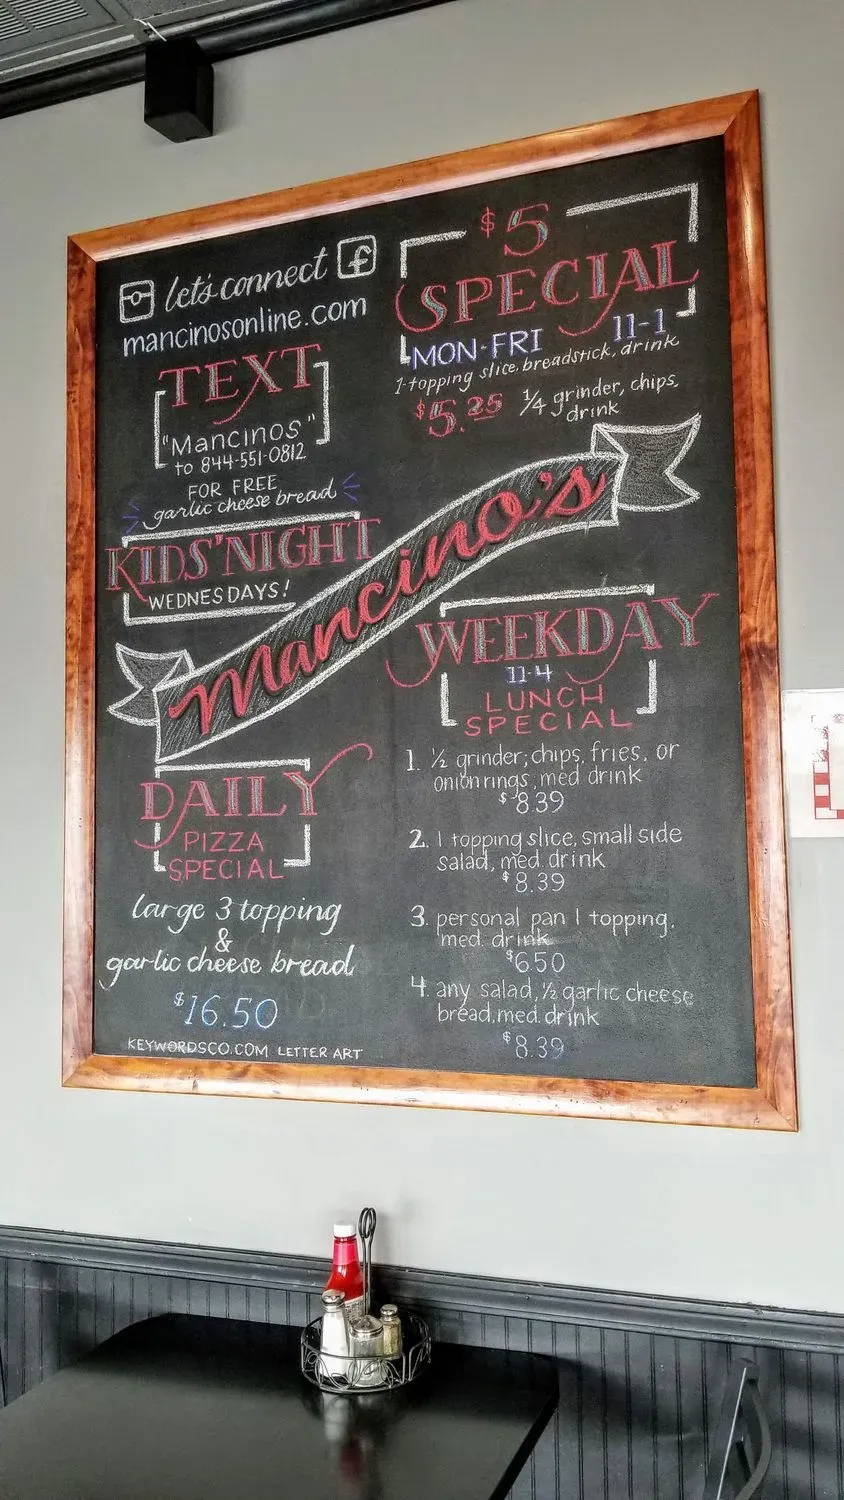 let's connect
mancinosonline.com
TEXT
"Mancinos"
to 844-551-0812
FOR FREE
garlic cheese bread
KIDS' NIGHT
WEDNESDAYS!
$5
SPECIAL
MON-FRI 11-1
1-topping slice, breadstick, drink
$5.25 1/4 grinder, chips,
drink
Mancino's
DAILY
PIZZA
SPECIAL
large 3 topping
&
garlic cheese bread
$16.50
KEYWORDSCO.COM LETTER ART
WEEKDAY
11-4
LUNCH
SPECIAL
1. 1/2 grinder; chips, fries, or
onion rings; med drink
$8.39
2. 1 topping slice, small side
salad, med. drink
$8.39
3. personal pan 1 topping,
med. drink
$6.50
4. any salad, 1/2 garlic cheese
bread, med. drink
$8.39